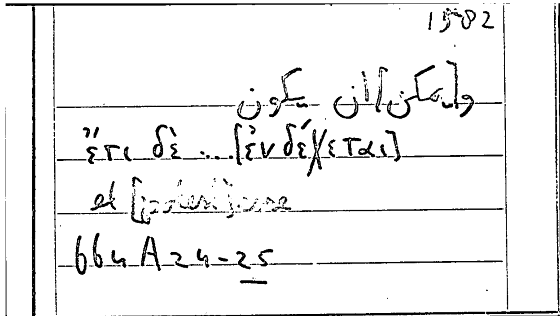 1582
و[يمكن] ان يكون
ἔτι δὲ ... [ἐνδέχεται]
et [potest] esse
664 A 24-25